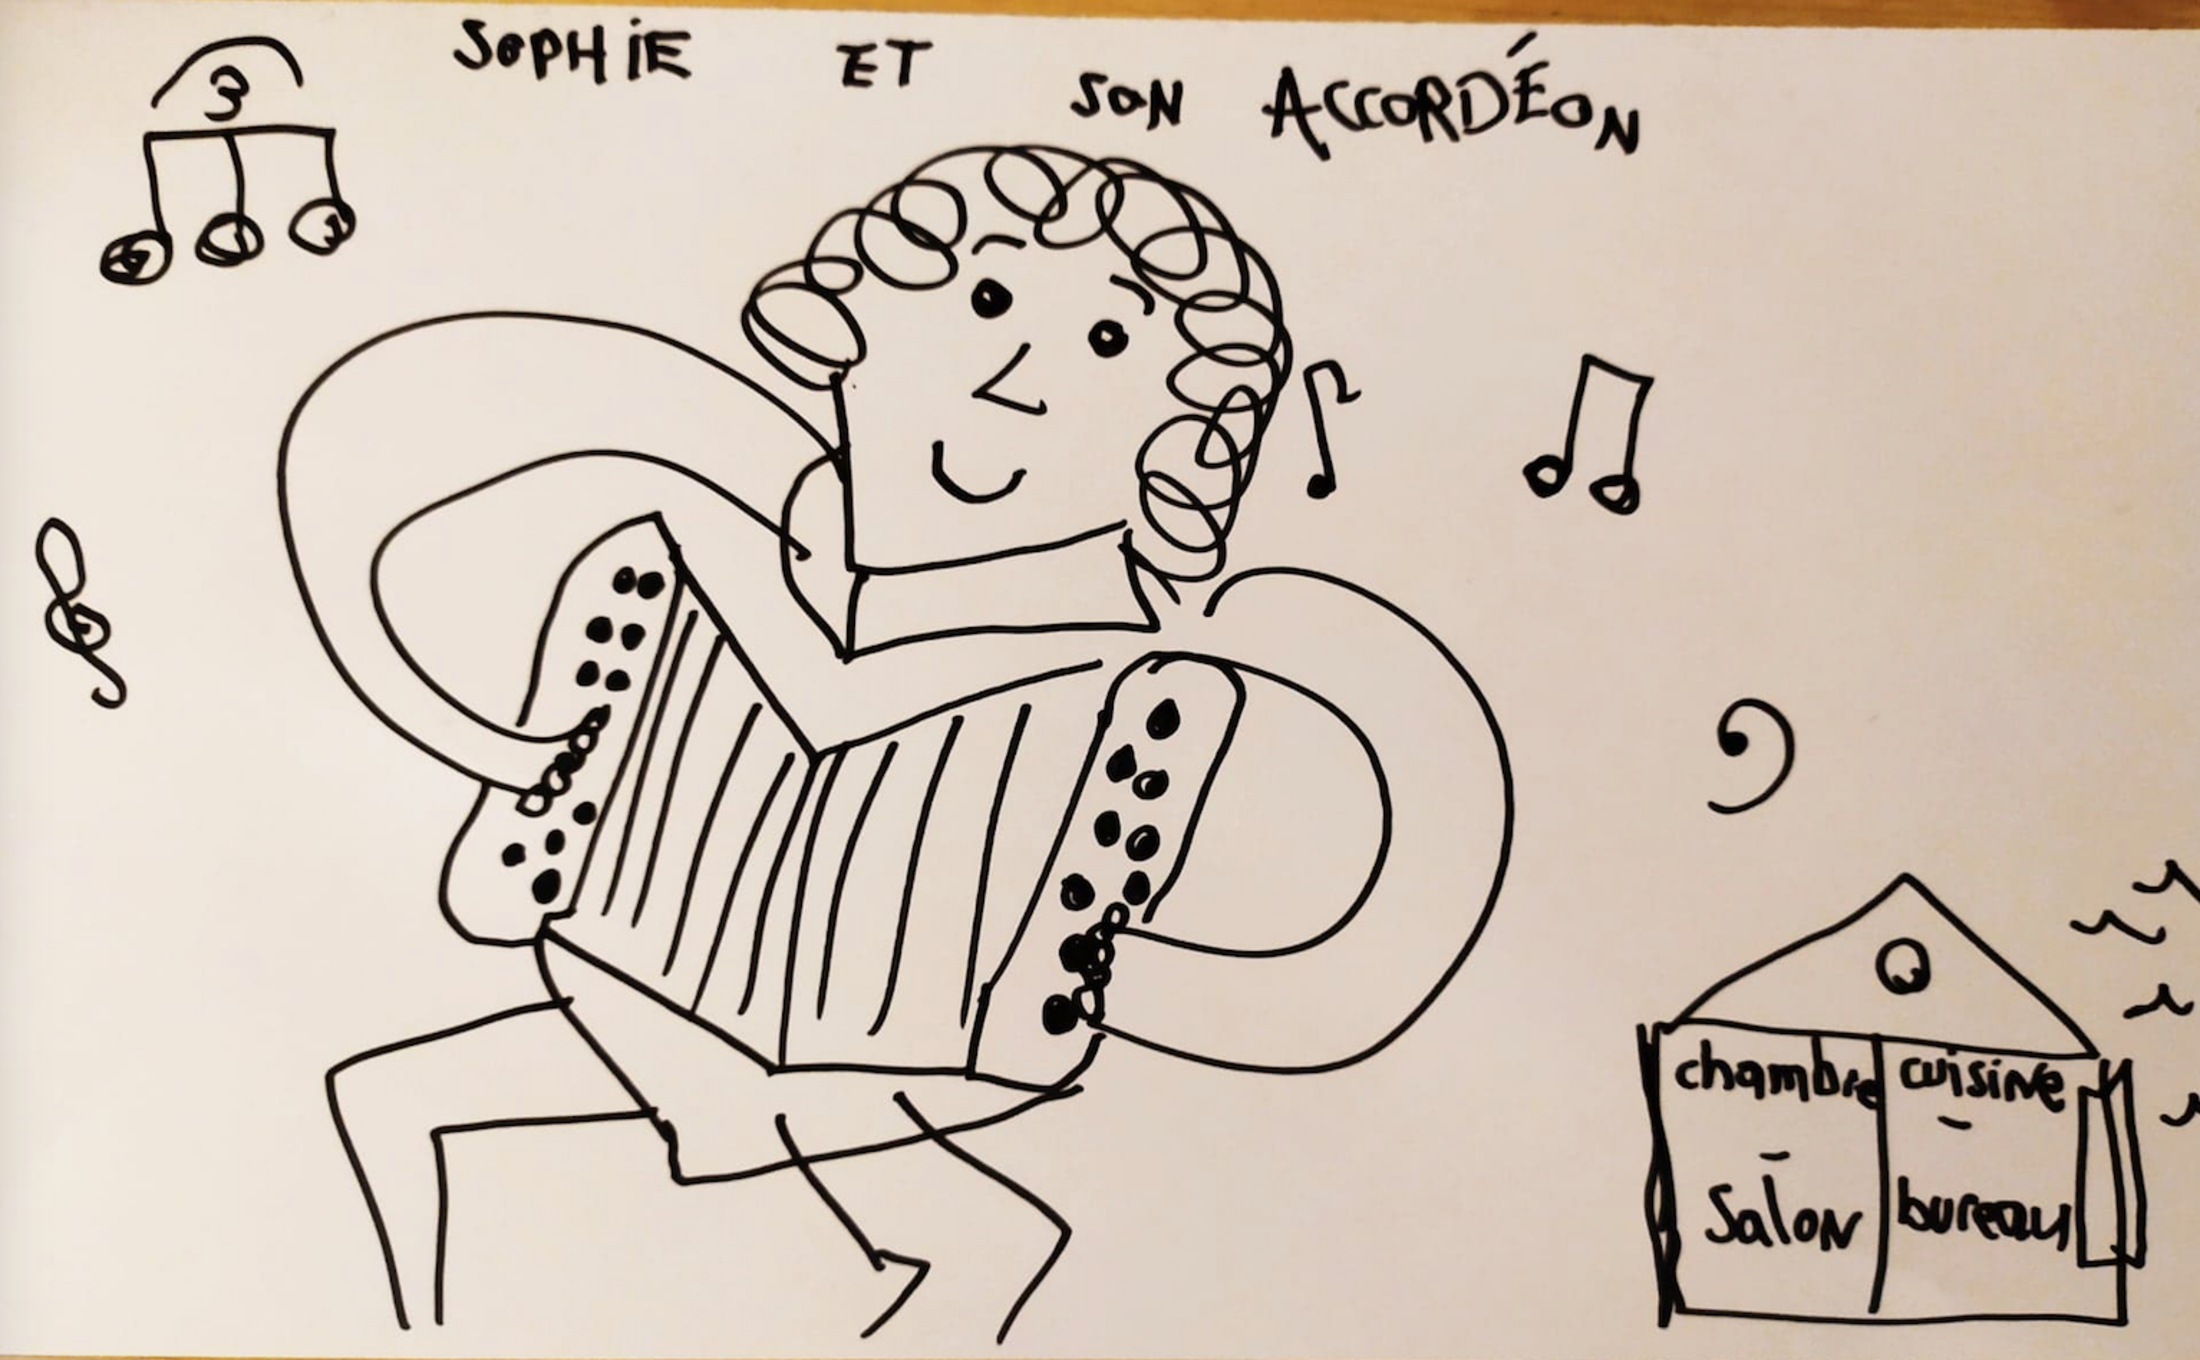 SOPHIE ET SON ACCORDÉON
3
chambre
-
Salon
cuisine
-
bureau